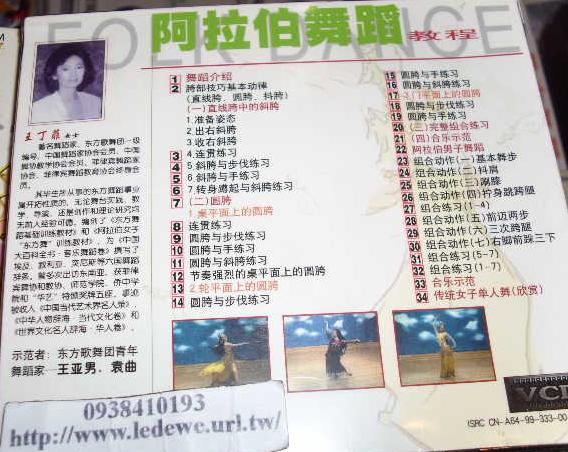 FOLK DANCE
阿拉伯舞蹈 教程
王丁菲 女士
著名舞蹈家、东方歌舞团一级
编导、中国舞蹈家协会会员、中国
舞协教学协会会员、菲律宾舞蹈家
协会、菲律宾舞蹈教育协会终身会
员。
其毕生从事的东方舞蹈事业
属开拓性质的，无论舞台实践、教
学、导演、还是创作和理论研究均
无前人经验可循。编创了《东方舞
蹈基础训练教材》和《阿拉伯女子
"东方舞"训练教材》，为《中国
大百科全书·音乐舞蹈卷》撰写了
埃及、叙利亚、突尼斯等六国舞蹈
辞条。曾多次出访东南亚、获菲律
宾舞协和教协、师范学院、侨中学
院和"华艺"特颁奖牌五座，事迹
被收入《中国当代艺术界名人录》、
《中华人物辞海·当代文化卷》和
《世界文化名人辞海·华人卷》。
示范者：东方歌舞团青年
舞蹈家—王亚男、袁曲
1 舞蹈介绍
2 胯部技巧基本动律
(直线胯、圆胯、抖胯)
(一)直线胯中的斜胯
1.准备姿态
2.出右斜胯
3.收右斜胯
3 4.连贯练习
4 5.斜胯与步伐练习
5 6.斜胯与手练习
6 7.转身蹲起与斜胯练习
7 (二)圆胯
1.桌平面上的圆胯
8 连贯练习
9 圆胯与步伐练习
10 圆胯与手练习
11 圆胯与斜胯练习
12 节奏强烈的桌平面上的圆胯
13 2.轮平面上的圆胯
14 圆胯与步伐练习
15 圆胯与手练习
16 圆胯与斜胯练习
17 3.门平面上的圆胯
18 圆胯与步伐练习
19 圆胯与手练习
20 (三)完整组合练习
21 (四)合乐示范
22 阿拉伯男子舞蹈
23 组合动作(一)基本舞步
24 组合动作(二)抖肩
25 组合动作(三)颤膝
26 组合动作(四)拧身跳踢腿
27 组合练习(1-4)
28 组合动作(五)前迈两步
29 组合动作(六)三次踢腿
30 组合动作(七)右脚前跺三下
31 组合练习(5-7)
32 组合练习(1-7)
33 合乐示范
34 传统女子单人舞(欣赏)
0938410193
http://www.ledewe.url.tw/
VCD
ISRC CN-A64-99-333-00